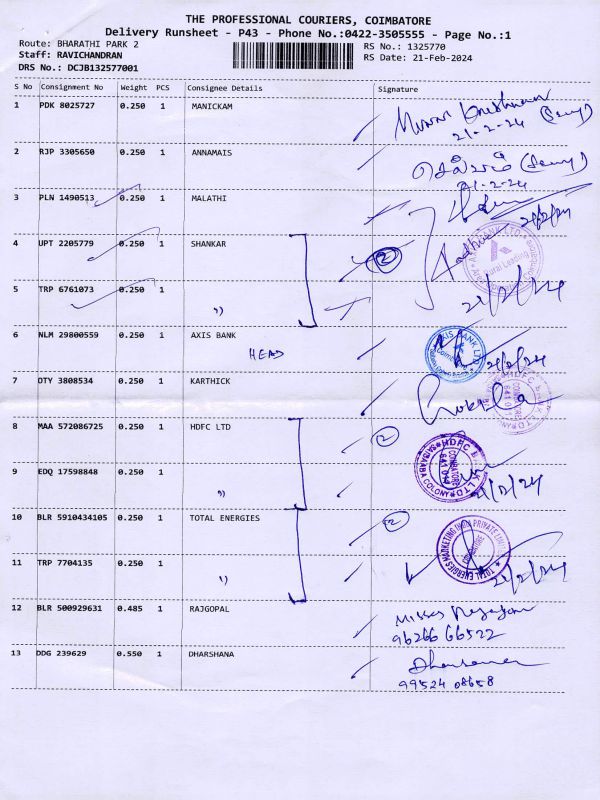 THE PROFESSIONAL COURIERS, COIMBATORE
Delivery Runsheet - P43 - Phone No.:0422-3505555 - Page No.:1
Route: BHARATHI PARK 2
RS No.: 1325770
Staff: RAVICHANDRAN
RS Date: 21-Feb-2024
DRS No.: DCJB132577001
S No Consignment No Weight PCS Consignee Details Signature
1 PDK 8025727 0.250 1 MANICKAM
21-2-24
2 RJP 3305650 0.250 1 ANNAMAIS
21-2-24
3 PLN 1490513 0.250 1 MALATHI
21/2/24
4 UPT 2205779 0.250 1 SHANKAR 2
5 TRP 6761073 0.250 1 ")
21/2/24
6 NLM 29800559 0.250 1 AXIS BANK
HEAD
AXIS BANK LTD
21/2/24
7 OTY 3808534 0.250 1 KARTHICK
HDFC BANK LTD
COIMBATORE
8 MAA 572086725 0.250 1 HDFC LTD 2
HDFC BANK LTD
SAIBABA COLONY
COIMBATORE
9 EDQ 17598848 0.250 1 ")
21/2/24
10 BLR 5910434105 0.250 1 TOTAL ENERGIES 2
TOTAL ENERGIES MARKETING INDIA PRIVATE LIMITED
11 TRP 7704135 0.250 1 ")
21/2/24
12 BLR 500929631 0.485 1 RAJGOPAL
96266 66522
13 DDG 239629 0.550 1 DHARSHANA
99524 08658